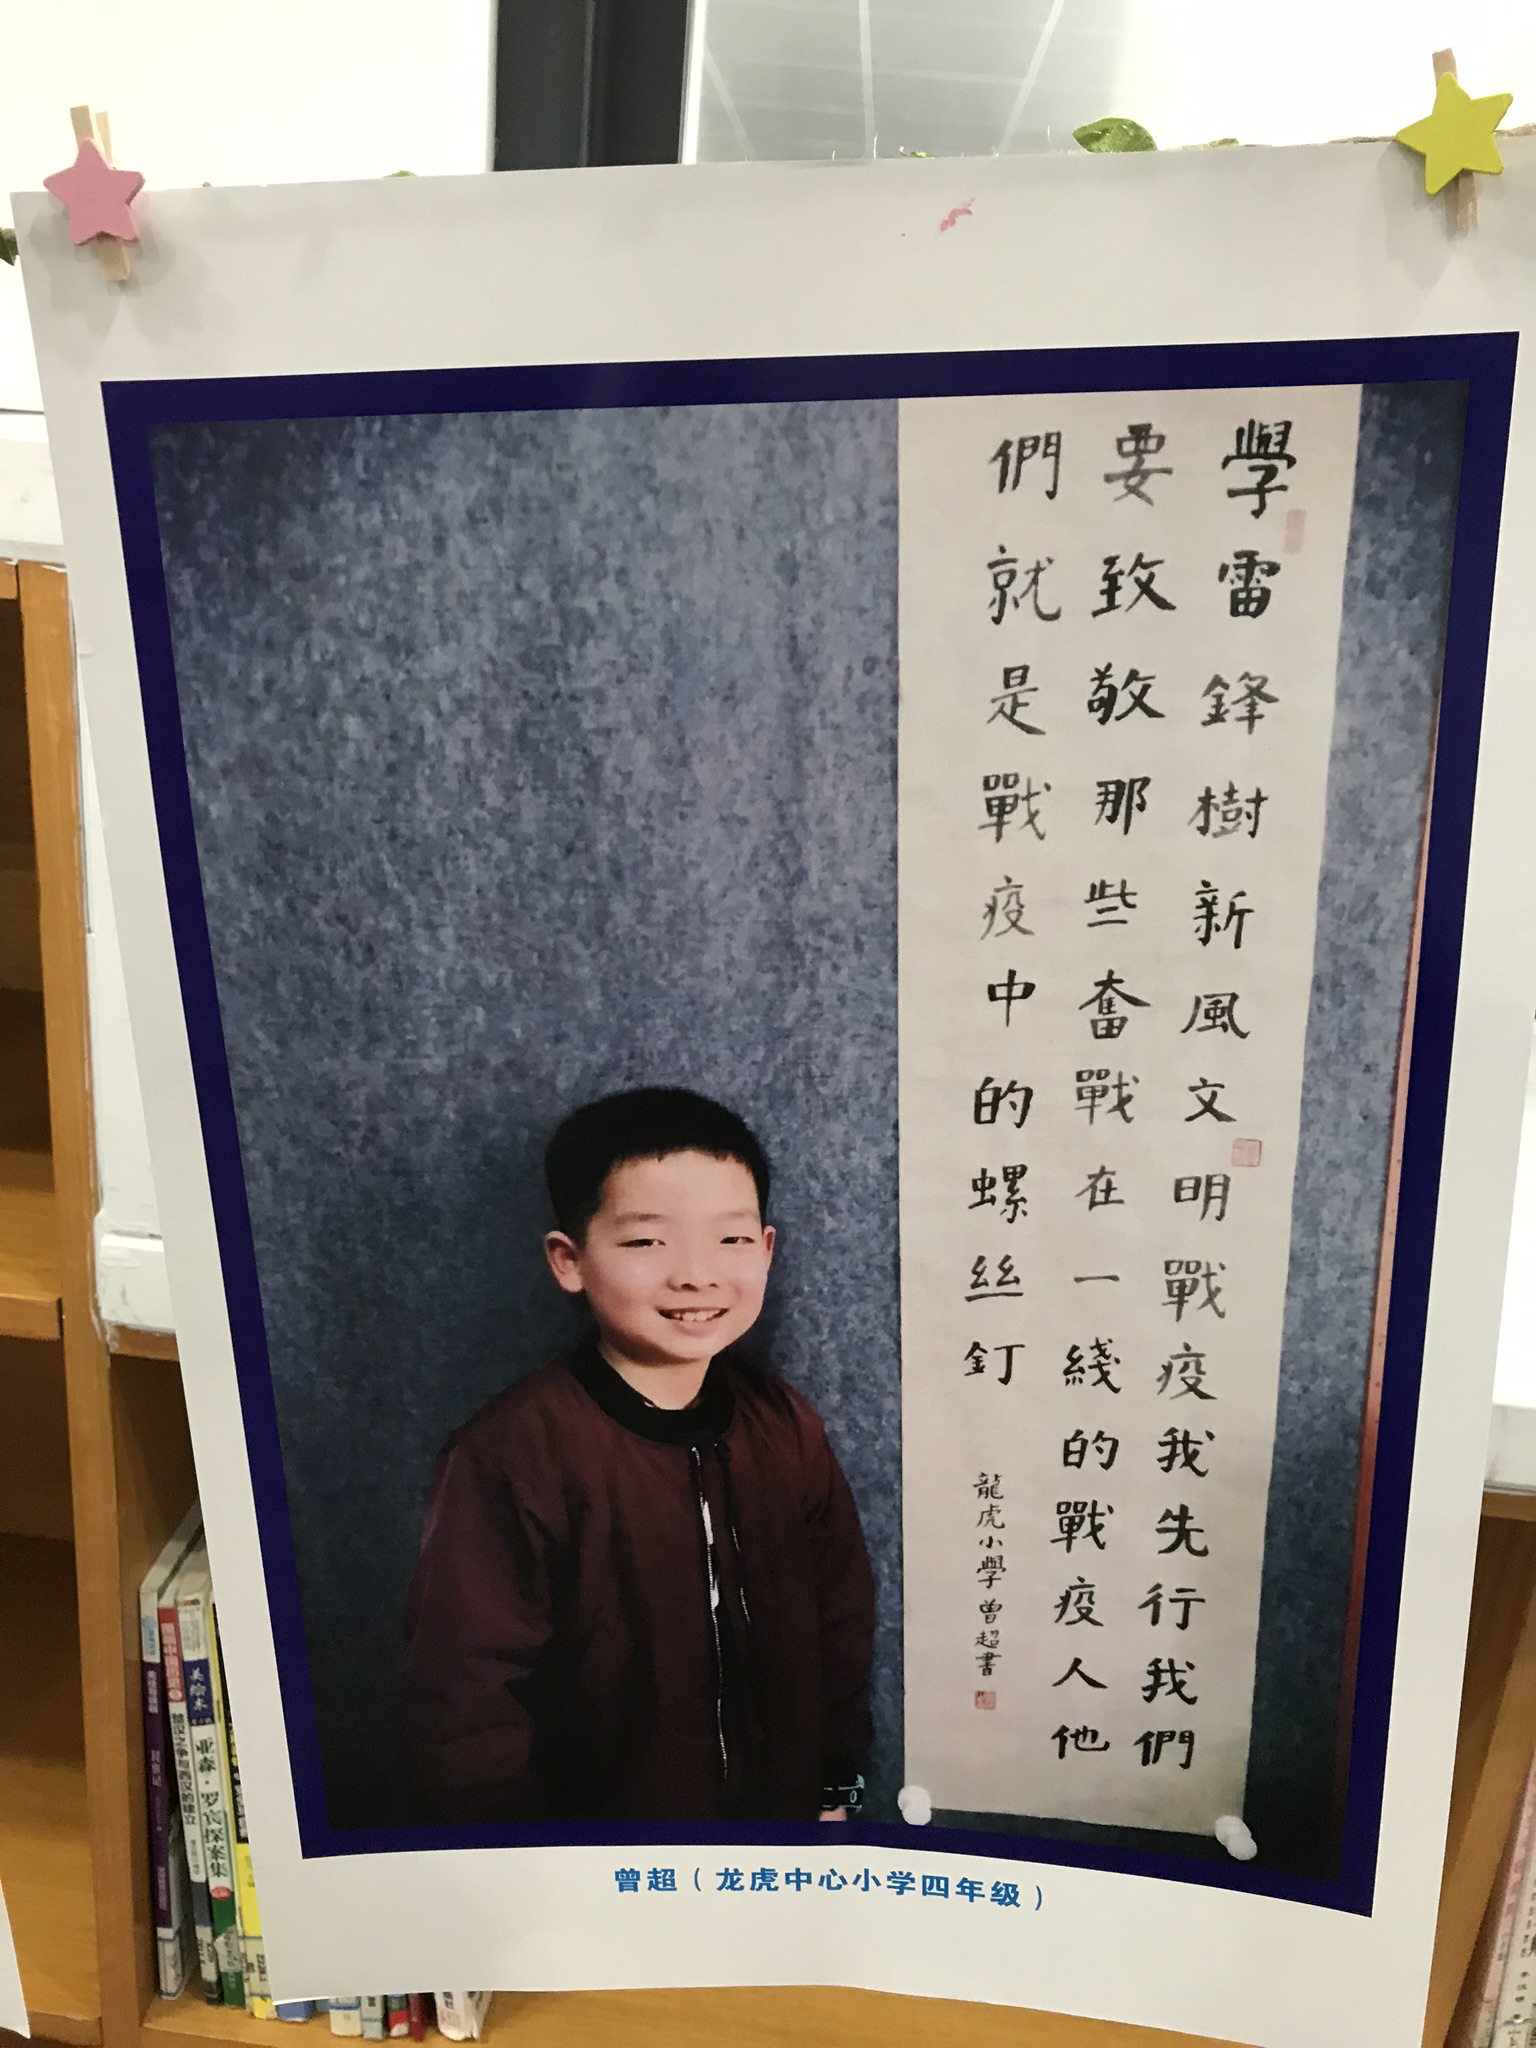 學雷鋒樹新風文明戰疫我先行我們
要致敬那些奮戰在一綫的戰疫人他
們就是戰疫中的螺丝釘
龍虎小學曾超書
曾超（龙虎中心小学四年级）
美绘本
亚森·罗宾探案集
楚汉之争与西汉的建立